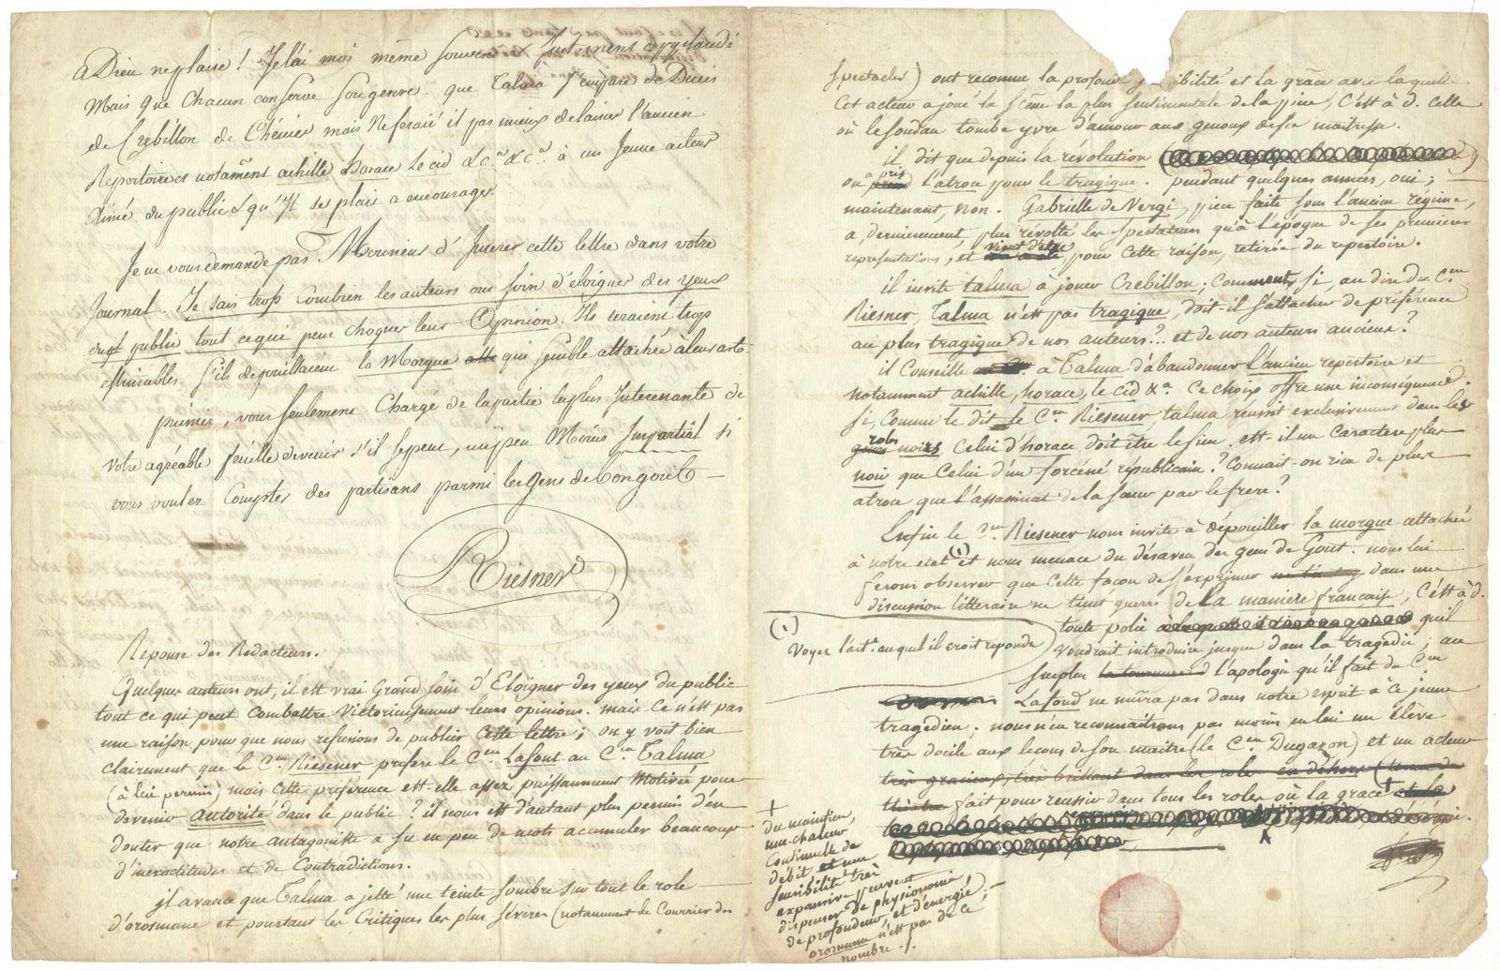 A Dieu ne plaise! Je l'ai moi même souvent Justement applaudi
Mais que chacun conserve son genre. que Talma s'empare de Ducis
de Crebillon de Chénier mais Ne ferait il pas mieux de laisser l'ancien
Repertoire et notament achille horace le cid &c.ª &c.ª à un Jeune acteur
Aimé du public & qu'Il se plait a encourager.
Je ne vous demande pas Messieurs d'Inserer cette lettre dans votre
Journal. Je sais trop Combien les auteurs ont soin d'éloigner des yeux
du public tout ce qui peut choquer leur Opinion. Ils seraient trop
estimables s'ils depouillaient la Morgue qui semble attachée à leur art.
, vous seulement Chargé de la partie la plus Interessante de
votre agréable feuille devenir s'il se peut, un peu Moins Impartial si
vous voulez Compter des partisans parmi les Gens de bon goût
Riesner
Réponse des Redacteurs.
Quelques auteurs ont, il est vrai Grand soin d'Eloigner des yeux du public
tout ce qui peut Combattre Victorieusement leurs opinions. mais ce n'est pas
une raison pour que nous refusions de publier Cette lettre; on y voit bien
clairement que le C.en Riesener prefere le C.en Lafont au C.en Talma
(à lui permis) mais cette préférence est-elle assez puissamment Motivée pour
devenir autorité dans le public? il nous est d'autant plus permis d'en
douter que notre antagoniste a su en peu de mots accumuler beaucoup
d'inexactitudes et de Contradictions.
il avance que Talma a jetté une teinte sombre sur tout le role
d'orosmane et pourtant les Critiques les plus sévères (notamment le Courrier des
spectacles) ont reconnu la profonde sensibilité et la grâce avec laquelle
Cet acteur a joué la scène la plus sentimentale de la piece, C'est à d. celle
où le soudan tombe yvre d'amour aux genoux de sa maitresse.
il dit que depuis la révolution
on a pris l'atroce pour le tragique. pendant quelques années, oui;
maintenant, non. Gabrielle de Vergi, piece faite sous l'ancien régime,
a, dernierement, plus revolté les spectateurs qu'à l'époque de ses premieres
representations, et vient d'etre, pour Cette raison, retirée du repertoire.
il invite talma à jouer Crebillon; Comment, si, au dire du C.en
Riesner, Talma n'est pas tragique, doit-il s'attacher de préférence
au plus tragique de nos auteurs?... et de nos auteurs anciens?
il Conseille à Talma d'abandonner l'ancien repertoire et
notamment achille, horace, le cid &ª. Ce choix offre une inconséquence.
si, Comme le dit le C.en Riesener, talma reussit exclusivement dans les
roles noirs Celui d'horace doit être le sien. est-il un Caractere plus
noir que Celui d'un forcené républicain? Connait-on rien de plus
atroce que l'assassinat de la sœur par le frere?
Enfin le C.en Riesener nous invite à dépouiller la morgue attachée
à notre etat (1) et nous menace du désaveu des gens de Gout. nous lui
ferons observer que Cette façon de s'exprimer dans une
discussion litteraire ne tient guerre de la maniere française, C'est à d.
toute polie qu'il
voudrait introduire jusque dans la tragedie; au
surplus l'apologie qu'il fait du C.en
(1)
Voyez l'art.e auquel il croit repondre
Lafond ne nuira pas dans notre esprit à Ce jeune
tragedien. nous n'en reconnaitrons pas moins en lui un élève
très docile aux leçons de son maitre (le C.en Dugazon) et un acteur
fait pour reussir dans tous les roles où la grace +
+
du maintien,
une chaleur
Continuelle de
débit et une
sensibilité très
expansive peuvent
dispenser de physionomie,
de profondeur, et d'énergie;
orosmane n'est pas de ce
nombre.